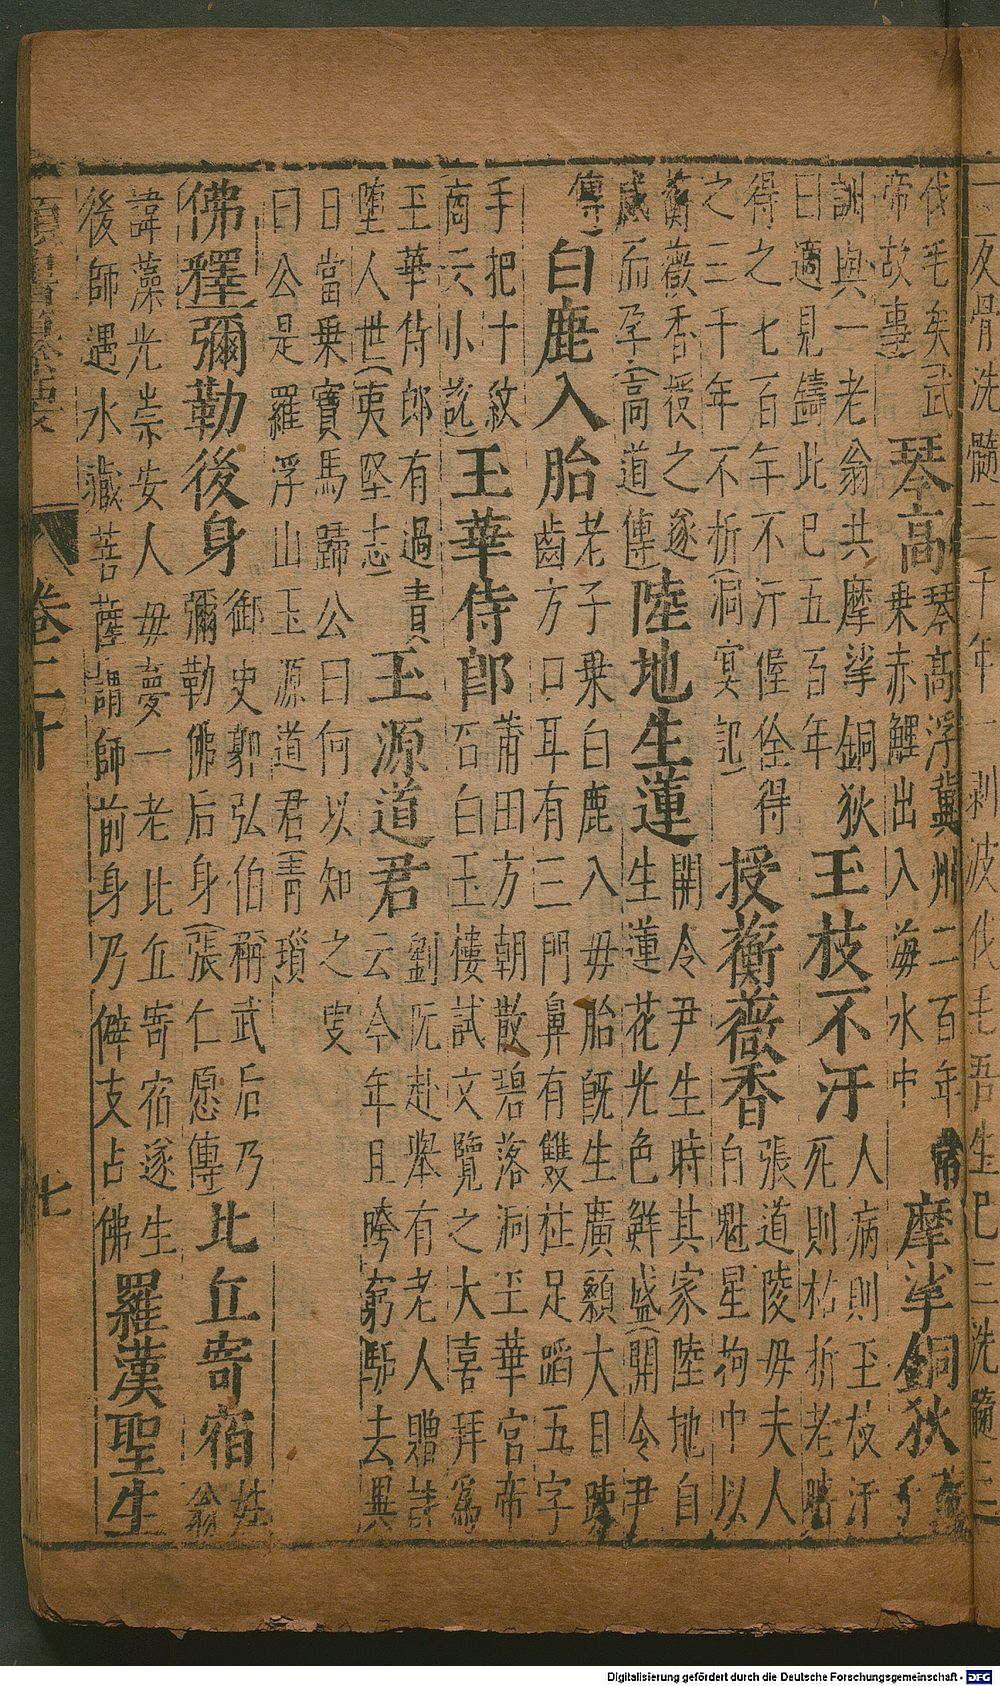 伐毛矣武
帝故事
琴高
琴高浮冀州二百年
乗赤鯉出入海水中
摩挲銅狄
子
訓與一老翁共摩挲銅狄
曰適見鑄此已五百年
玉枝不汗
人病則玉枝汗
死則枯折老聃
得之七百年不汗偓佺得
之三千年不折(洞冥記)
授蘅薇香
張道陵毋夫人
自魁星拘中以
蘅薇香授之遂
感而孕(高道傳)
陸地生蓮
關令尹生時其家陸地自
生蓮花光色鮮盛(關令尹
傳)
白鹿入胎
老子乗白鹿入毋胎旣生廣顙大目踈
齒方口耳有三門鼻有雙柱足蹈五字
手把十紋
商云小說)
玉華侍郎
莆田方朝散碧落洞玉華宮帝
召白玉樓試文覽之大喜拜爲
玉華侍郎有過責
墮人世(夷堅志)
王源道君
劉阮赴舉有老人贈詩
云今年且跨窮馿去異
日當乗寶馬歸公曰何以知之叟
曰公是羅浮山玉源道君(青瑣
佛釋
彌勒後身
御史郭弘伯稱武后乃
彌勒佛后身(張仁愿傳)
比丘寄宿
姓
翁
諱藻光崇安人毋夢一老比丘寄宿遂生
後師遇水藏菩薩謂師前身乃僻支占佛
羅漢聖生
卷二十
七
Digitalisierung gefördert durch die Deutsche Forschungsgemeinschaft - DFG